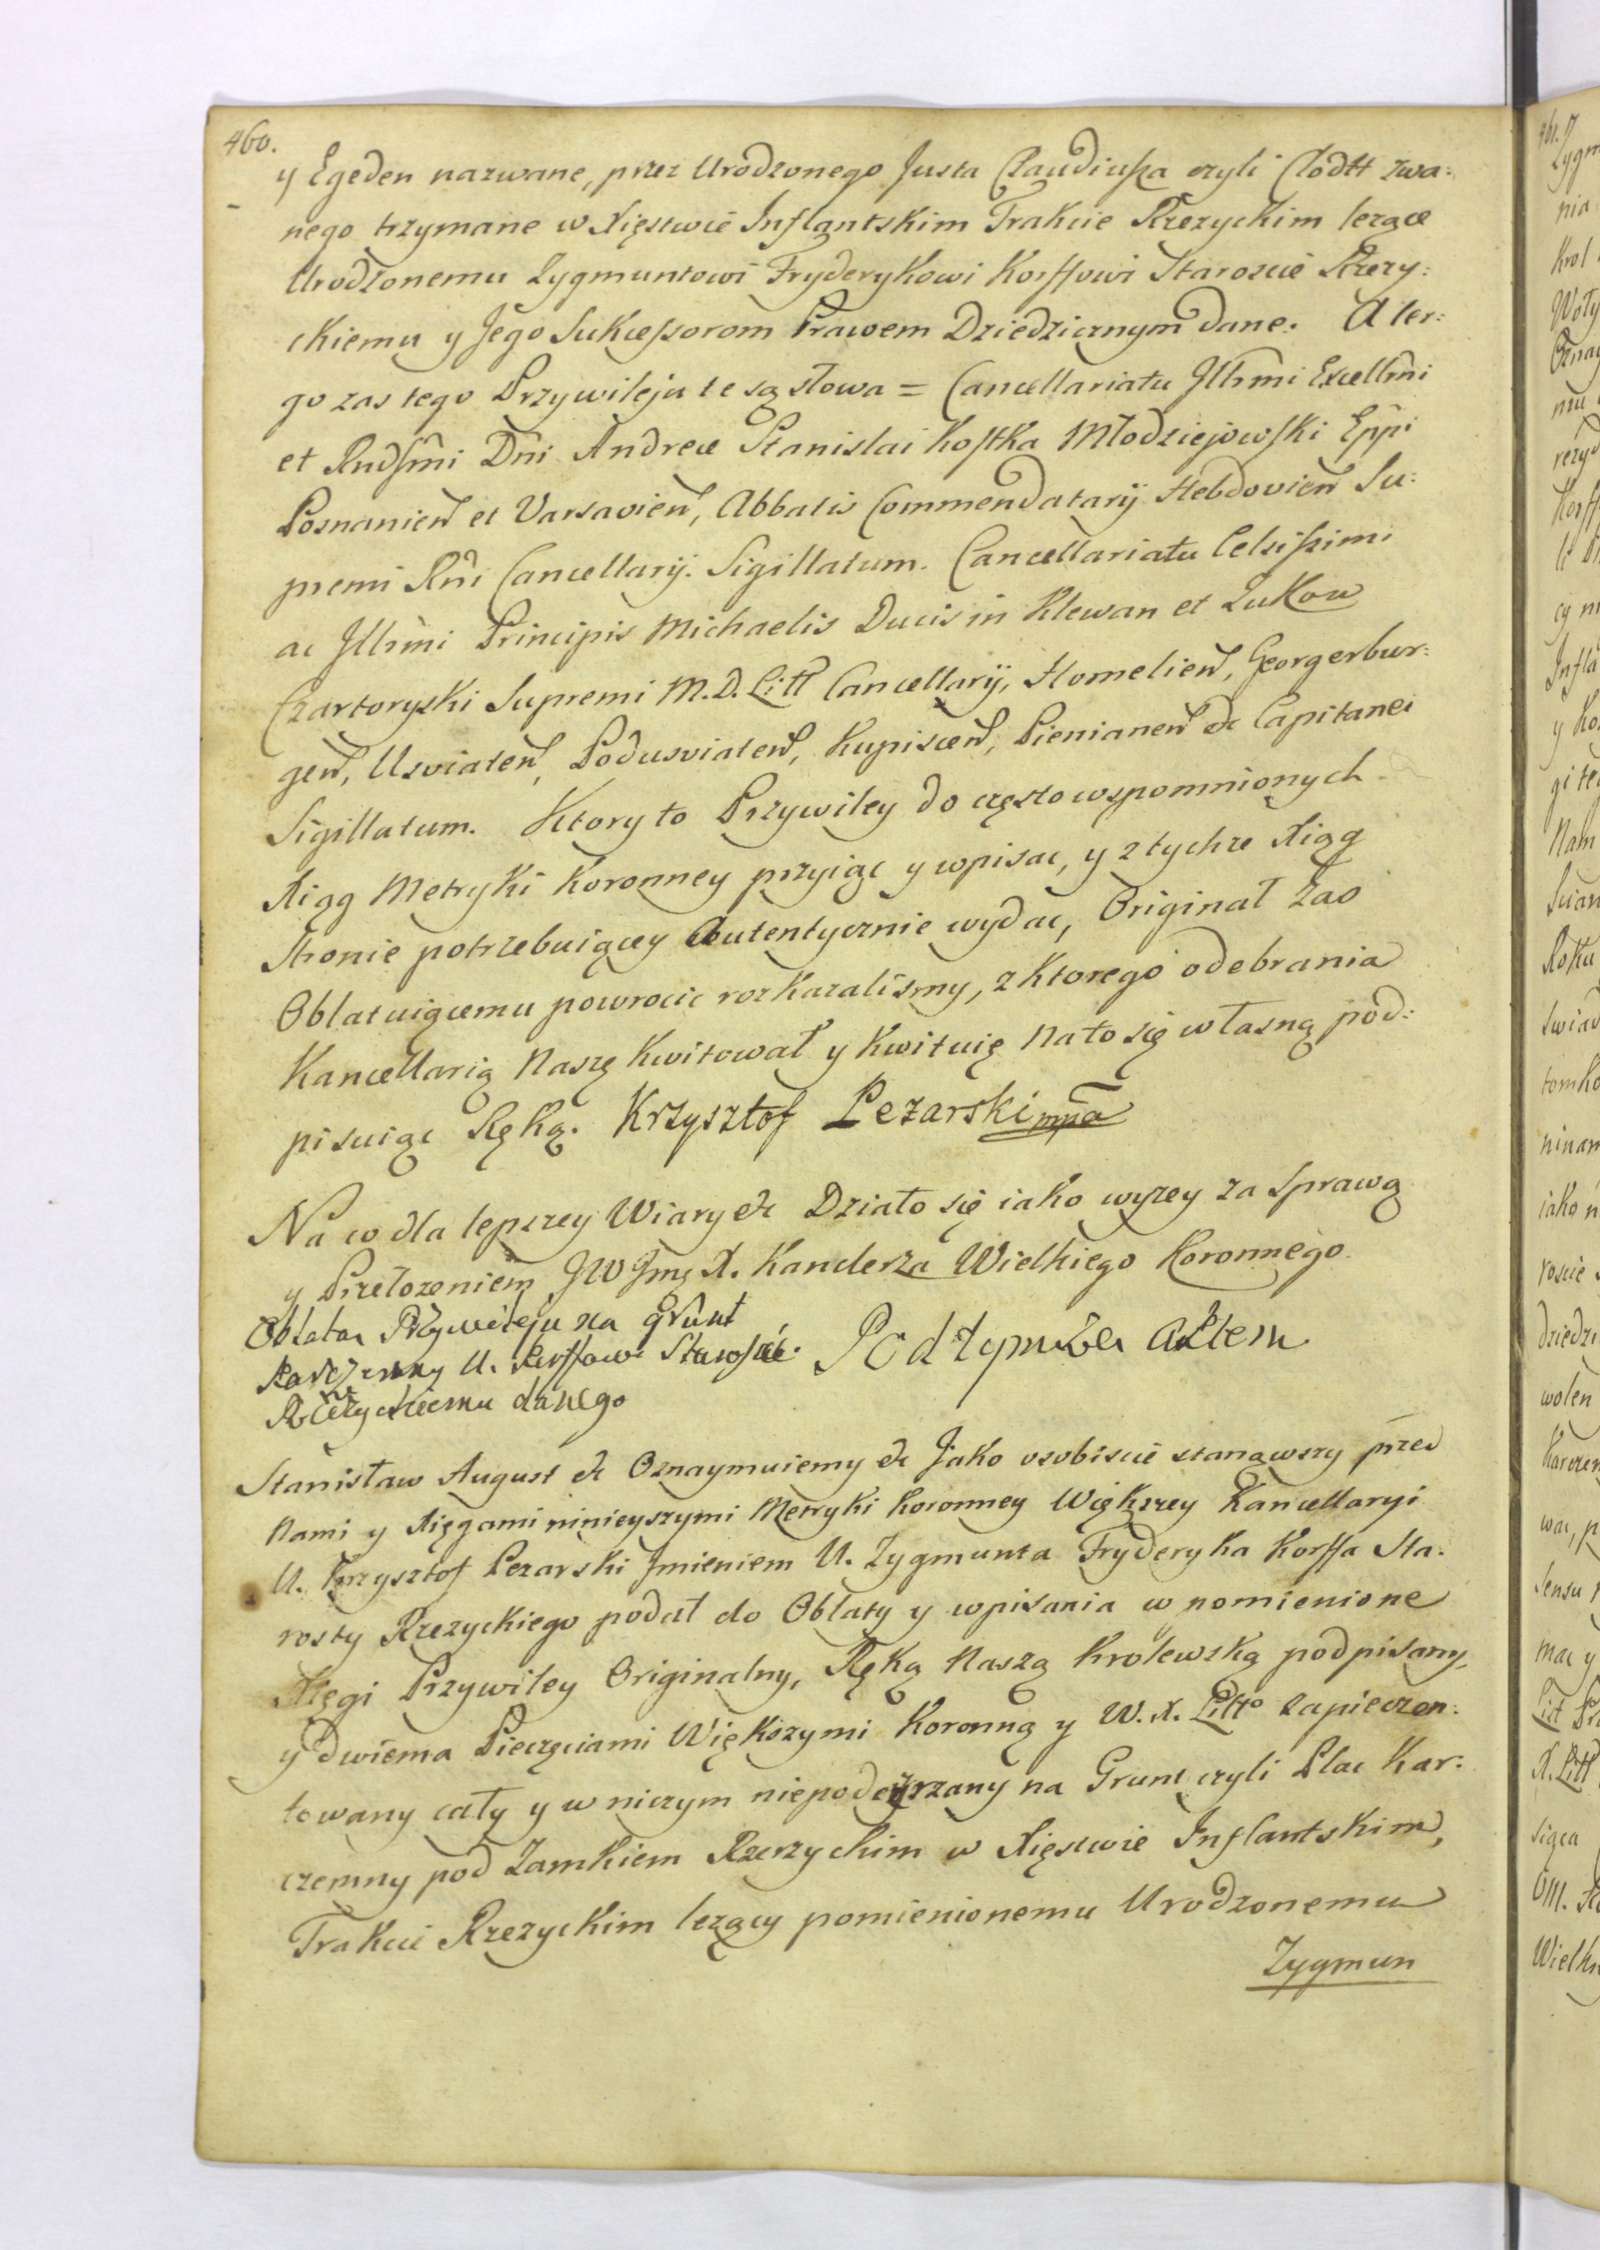 460.
y Egeden nazwane, przez Urodzonego Justa Claudiusza czyli Clodtt zwa:
nego trzymane w Xięstwie Inflantskim Trakcie Rzezyckim leżące
Urodzonemu Zygmuntowi Fryderykowi Korffowi Staroscie Rzezy:
ckiemu y Jego Sukcessorom Prawem Dziedzicznym dane. A ter:
go zas tego Przywileju te są słowa = Cancellariatu Illrmi Excellmi
et Rndsmi Dni Andreæ Stanislai Kostka Młodziejowski Eppi
Posnanień et Varsavień, Abbatis Commendatarij Hebdovień Su:
premi Rni Cancellarij. Sigillatum. Cancellariatu Celsissimi
ac Illrmi Principis Michaelis Ducis in Klewan et Zukow
Czartoryski Supremi M.D.Litt Cancellarij, Homelień, Georgerbur:
geń, Usviateń, Podusviateń, Kupisceń, Pienianeń &c Capitanei
Sigillatum. Ktory to Przywiley do często wspomnionych
Xiąg Metryki Koronney przyiąc y wpisac, y z tychze Xiąg
Stronie potrzebuiącey Autentycznie wydac, Originał zas
Oblatuiącemu powrocic rozkazalismy, z ktorego odebrania
Kancellarią Naszę kwitował y kwituię na to się własną pod:
pisuiąc Ręką. Krzysztof Pezarski mpa
Na co dla lepszey Wiary &c Działo się iako wyzey za sprawą
y Przełożeniem JW Jmę X. Kanclerza Wielkiego Koronnego.
Oblata Przywileju na Grunt
Karczemny U. Korffowi Staroscie
Rzezyckiemu danego
Pod tymze Aktem
Stanisław August &c Oznaymuiemy &c Jako osobiscie stanąwszy przed
Nami y Xięgami ninieyszymi Metryki Koronney Większey Kancellaryi
U. Krzysztof Pezarski Jmieniem U. Zygmunta Fryderyka Korffa Sta:
rosty Rzezyckiego podał do Oblaty y wpisania w pomienione
Xięgi Przywiley Originalny, Ręką Naszą Krolewską podpisany,
y Dwiema Pieczęciami Większymi Koronną y W.X. Litto zapieczen:
towany cały y w niczym niepodeyrzany na Grunt czyli Plac Kar:
czemny pod Zamkiem Rzezyckim w Xięstwie Inflantskim,
Trakcie Rzezyckim lezący pomienionemu Urodzonemu
Zygmun